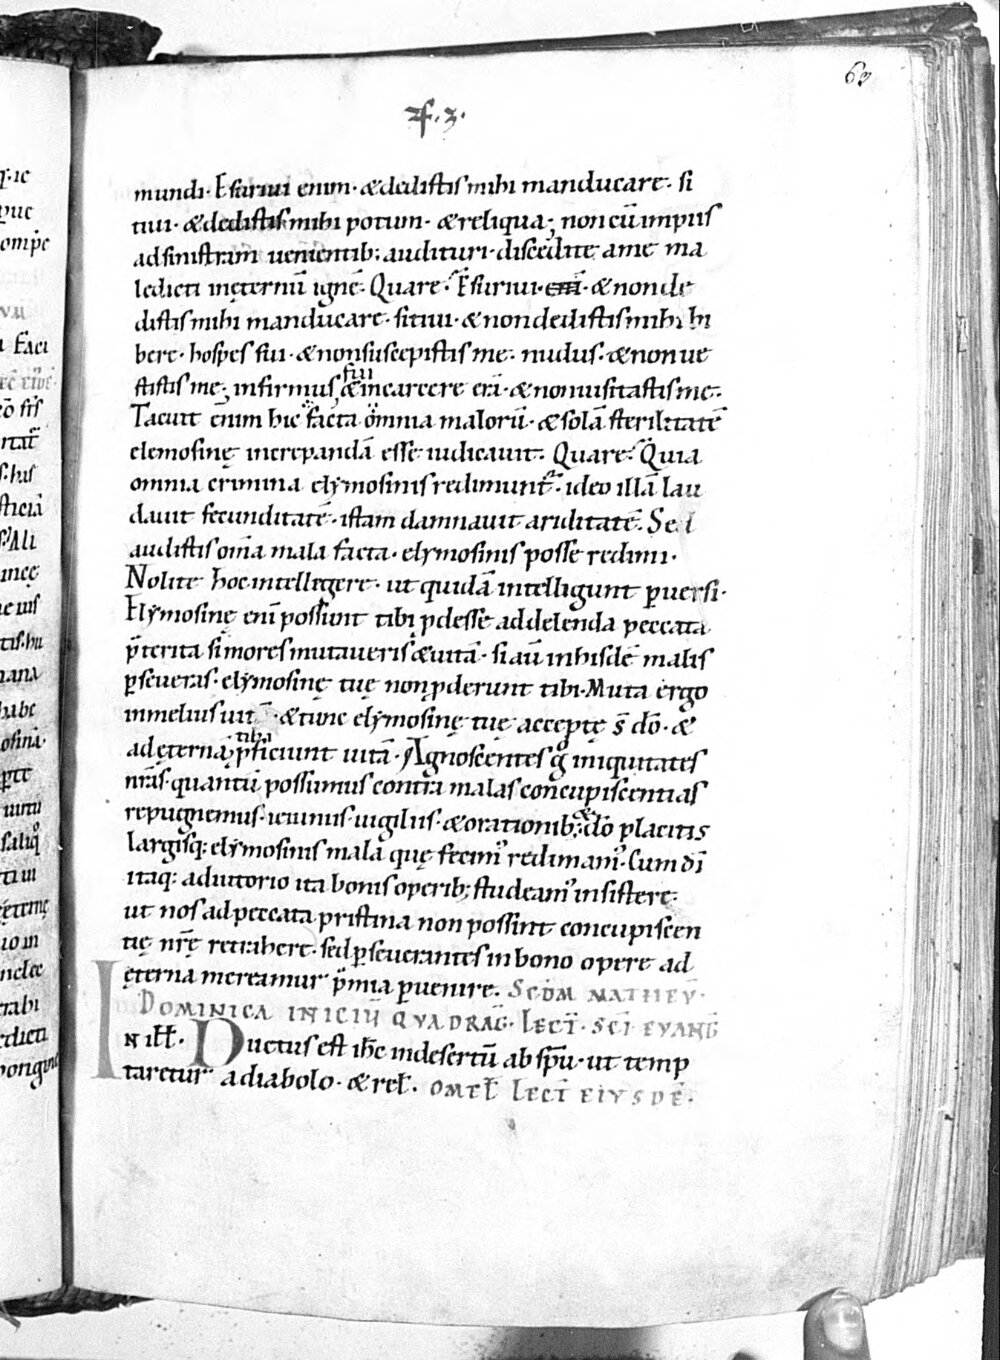 63
mundi· Esuriui enim· & dedistis mihi manducare· si
tiui· & dedistis mihi potum· & reliqua; non cū impiis
ad sinistram uenientib; audituri· discedite a me ma
ledicti in ęternū ignē· Quare· Esuriui· & non de
distis mihi manducare· sitiui· & non dedistis mihi bi
bere· hospes fui· & non suscepistis me· nudus· & non ue
stistis me; infirmus fui & in carcere erā· & non uisitastis me·
Tacuit enim hic facta omnia malorū· & solā sterilitatē
elemosinę increpandā esse iudicauit· Quare· Quia
omnia crimina elymosinis redimunt̄· ideo illā lau
dauit fecunditatē· istam damnauit ariditatē· Sed
audistis om̄a mala facta· elymosinis posse redimi·
Nolite hoc intellegere· ut quidā intelligunt puersi·
Elymosinę enī possunt tibi pdesse ad delenda peccata
p̄terita si mores mutaueris & uitā· si aū in hisdē malis
pseueras· elymosinę tuę non pderunt tibi· Muta ergo
in melius uitā· & tunc elymosinę tuę acceptę s̄ dō· &
ad ęternā tibi pficiunt uitā· Agnoscentes g̊ iniquitates
nr̄as· quantū possumus contra malas concupiscentias
repugnemus· ieiuniis· uigiliis· & orationib; & dō placitis
largisq; elymosinis mala quę fecim' redimam'· Cum dī
itaq; adiutorio ita bonis operib; studeam' insistere·
ut nos ad peccata pristina non possint concupiscen
tię nr̄ę retrahere· sed pseuerantes in bono opere ad
ęterna mereamur p̄mia puenire. SCDM MATHEV̄·
DOMINICA INICIŪ QVADRAḠ· LECT̄· SC̄I EVANḠ
IN ill̄· Ductus est ih̄c in desertū ab sp̄u· ut temp
taretur a diabolo· & rel̄· OMEL̄ LECT̄ EIVSDĒ·